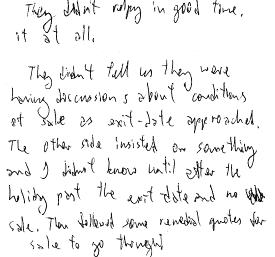 They didn't reply in good time,
if at all.
They didn't tell us they were
having discussions about conditions
of sale as exit-date approached.
The other side insisted on something
and I didn't know until after the
holiday past the exit date and no
sale. Then followed some remedial quotes for
sale to go through